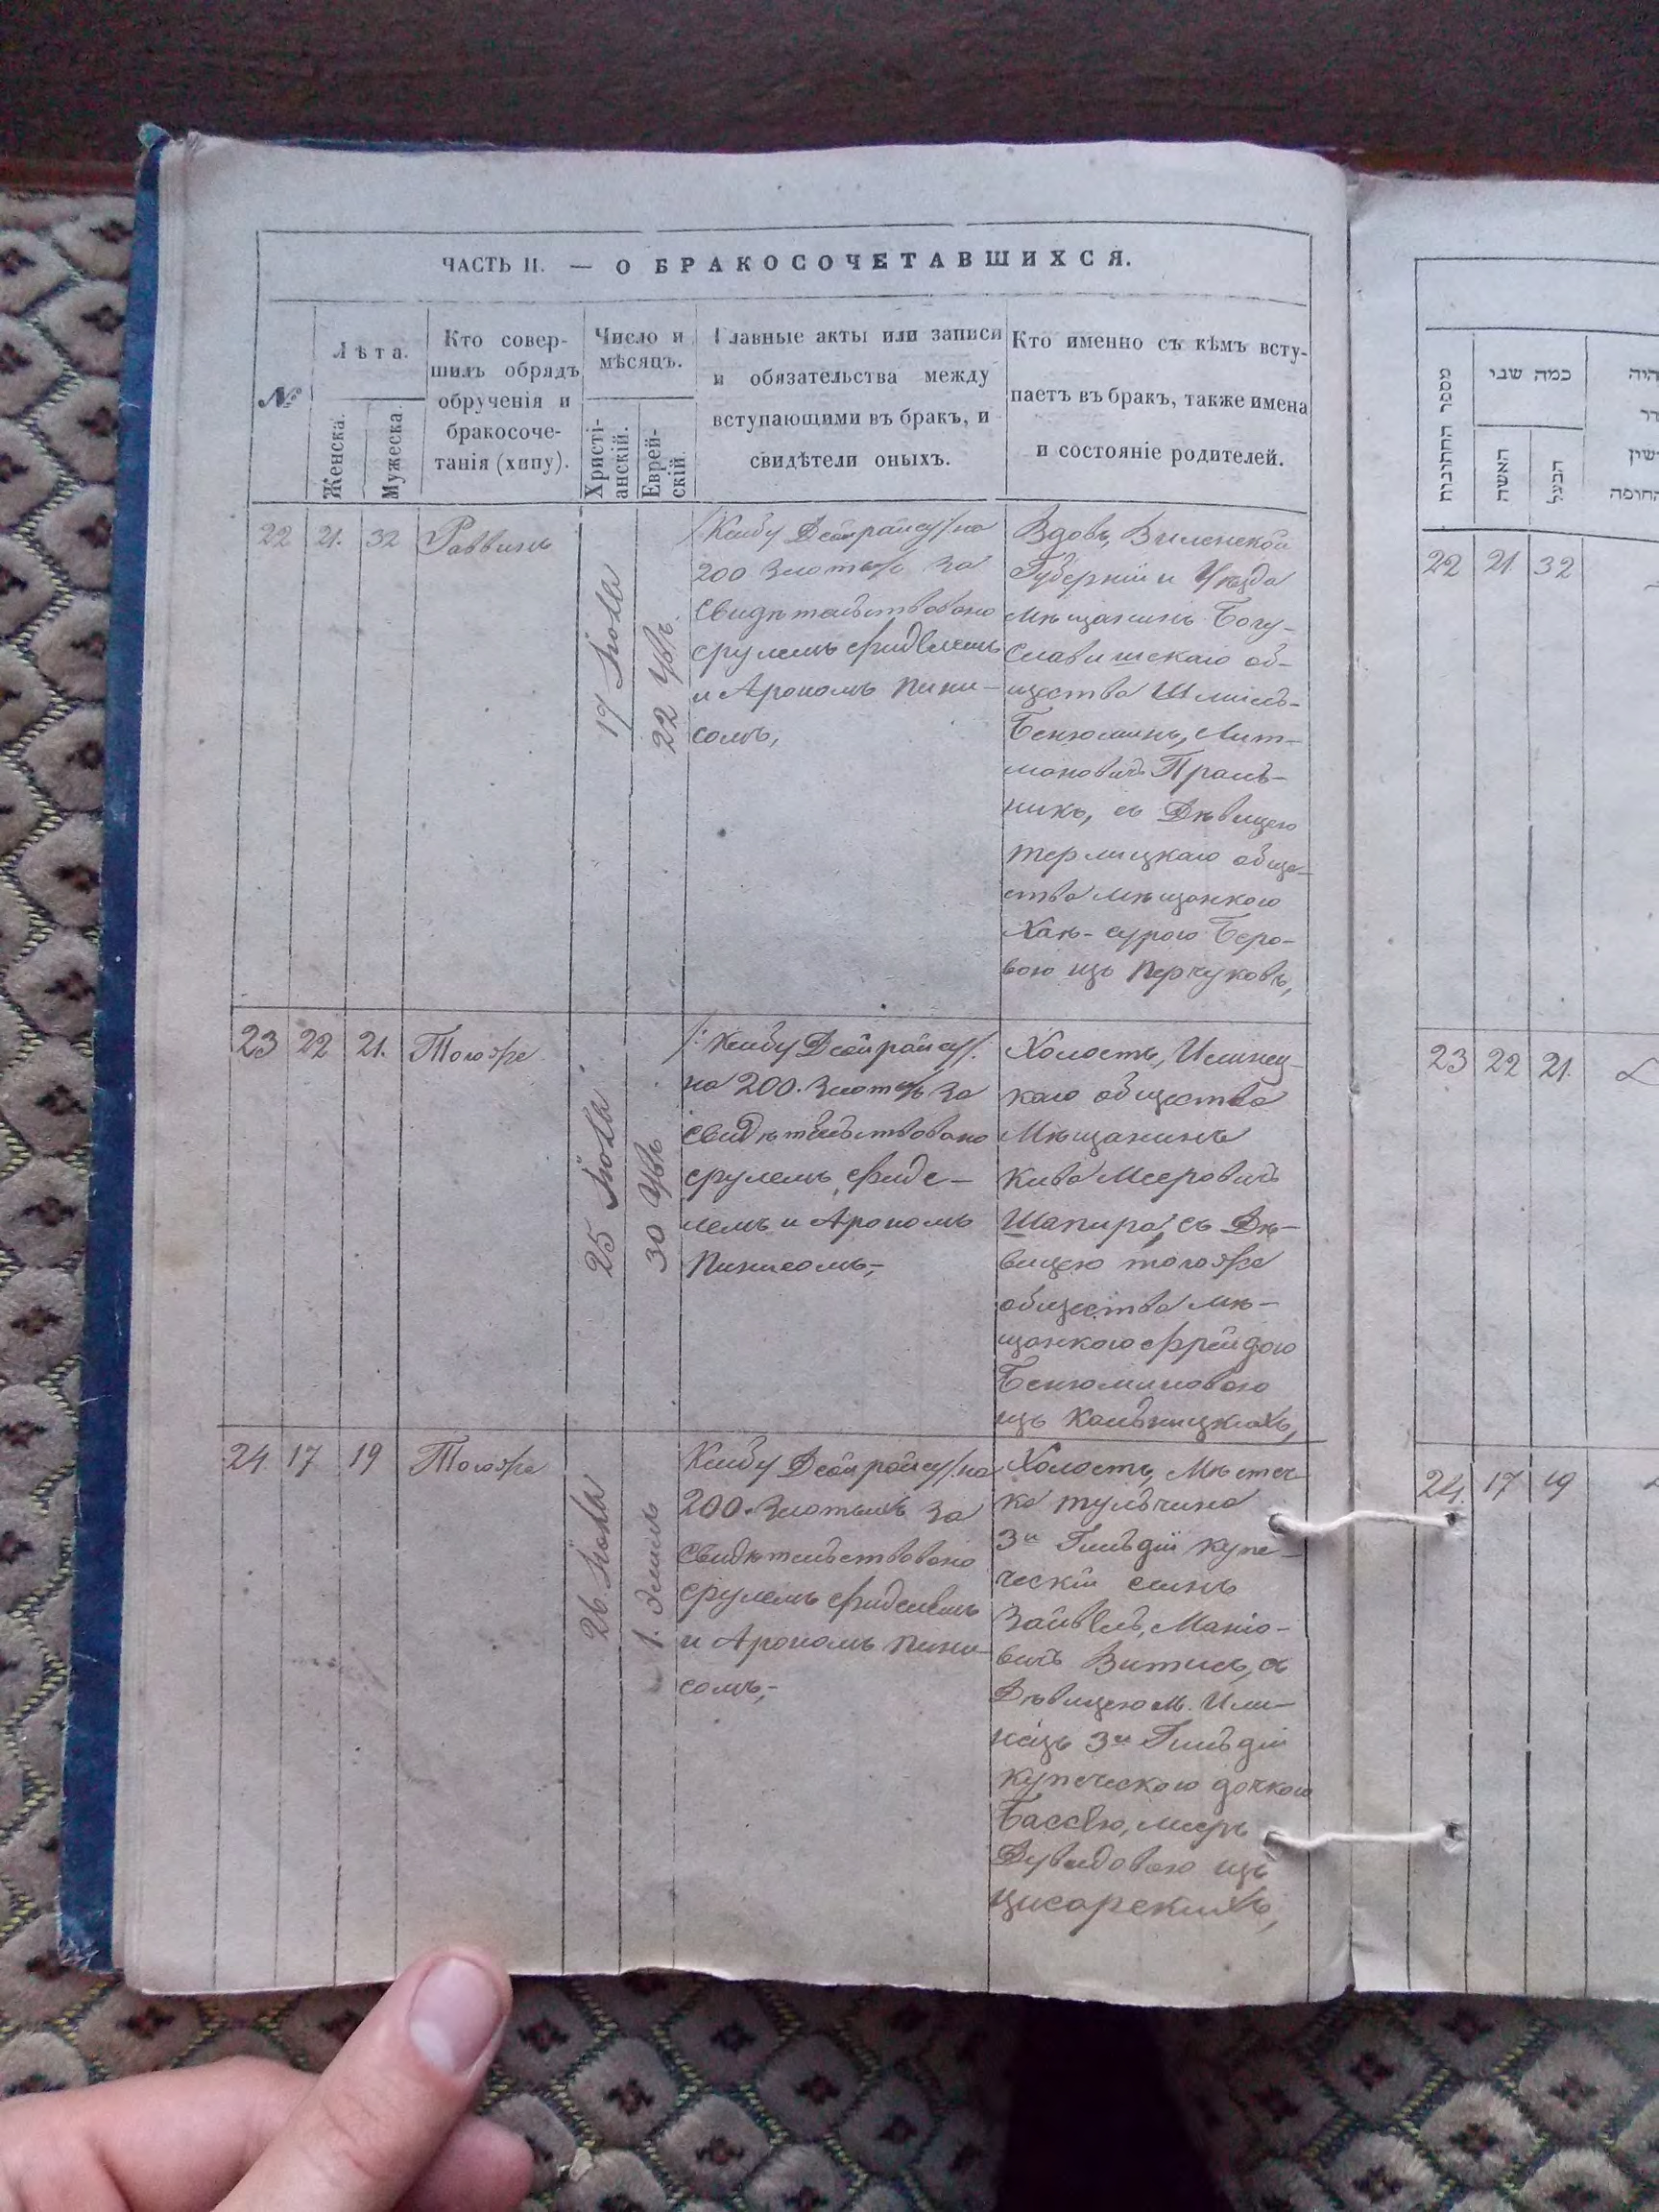 ЧАСТЬ II. — О БРАКОСОЧЕТАВШИХСЯ.
№
Лѣта.
Женска.
Мужеска.
Кто совер-
шилъ обрядъ
обрученія и
бракосоче-
танія (хипу).
Число и
мѣсяцъ.
Христі-
анскій.
Еврей-
скій.
Главные акты или записи
и обязательства между
вступающими въ бракъ, и
свидѣтели оныхъ.
Кто именно съ кѣмъ всту-
паетъ въ бракъ, также имена
и состояніе родителей.
22 21. 32 Раввинъ
19 Іюля
22
на
200 Злотыхъ За
Свидѣтельствовано
срулемъ
и Арономъ Пини-
сомъ,
Вдовъ, Виленской
Губерніи и Уѣзда
мѣщанинъ Богу-
Славишскаго об-
щества Шмиль-
Бенюминъ, Лит-
мановичъ
никъ, съ Дѣвицею
терлицкаго обще-
ства мѣщанкою
Хая-сурою Беро-
вою изъ Перчуковъ,
23 22 21. Тогоже
25 Іюля
30
на 200. Злотыхъ За
свидѣтельствовано
срулемъ фиде-
лемъ и Арономъ
Пинисомъ,-
Холостъ, Илинец-
каго общества
Мѣщанинъ
Кива Мееровичъ
Шапира, съ Дѣ-
вицею тогоже
общества мѣ-
щанкою фрейдою
Бенюминовою
изъ Кальницкихъ,
24. 17 19 Тогоже
26. Іюля
1. Элиль
на
200. Злотыхъ За
свидѣтельствовано
срулемъ фиделемъ
и Арономъ Пини-
сомъ,-
Холостъ, Мѣстеч-
ка тульчина
3й Гильдіи купе-
ческій сынъ
Зайвель, Маніо-
вичъ Витисъ, съ
Дѣвицею м. Или-
нецъ 3й Гильдіи
купеческою дочкою
Бассею,
Дувидовою изъ
Цисарскихъ,
מספר החתונות
כמה שני
האשה
הבעל
22 21 32
23 22 21.
24. 17 19